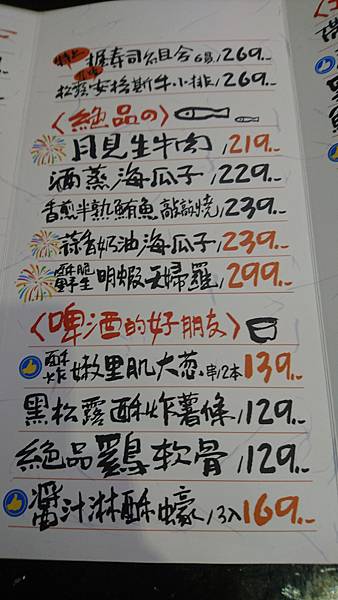 特上 握壽司組合 6貫/269.-
松露安格斯牛小排/269.-
〈絕品の〉
月見生牛肉/219.-
酒蒸海瓜子/229.-
香煎半熟鮪魚敲敲燒/239.-
蒜香奶油海瓜子/239.-
酥脆野生明蝦天婦羅/299.-
〈啤酒的好朋友〉
酥炸嫩里肌大葱.串/2本139.-
黑松露酥炸薯條/129.-
絕品鷄軟骨/129.-
醬汁淋酥蠔/3入169.-